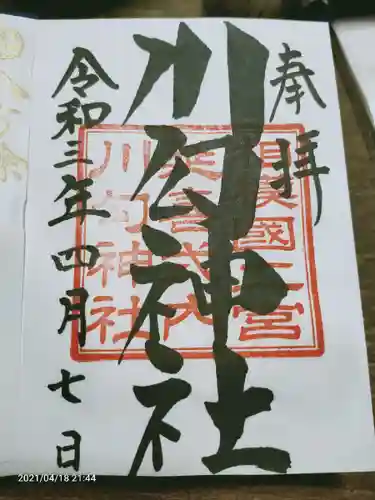 奉拝
川勾神社
令和三年四月七日
相模國二宮
延喜式内
川勾神社
2021/04/18 21:44